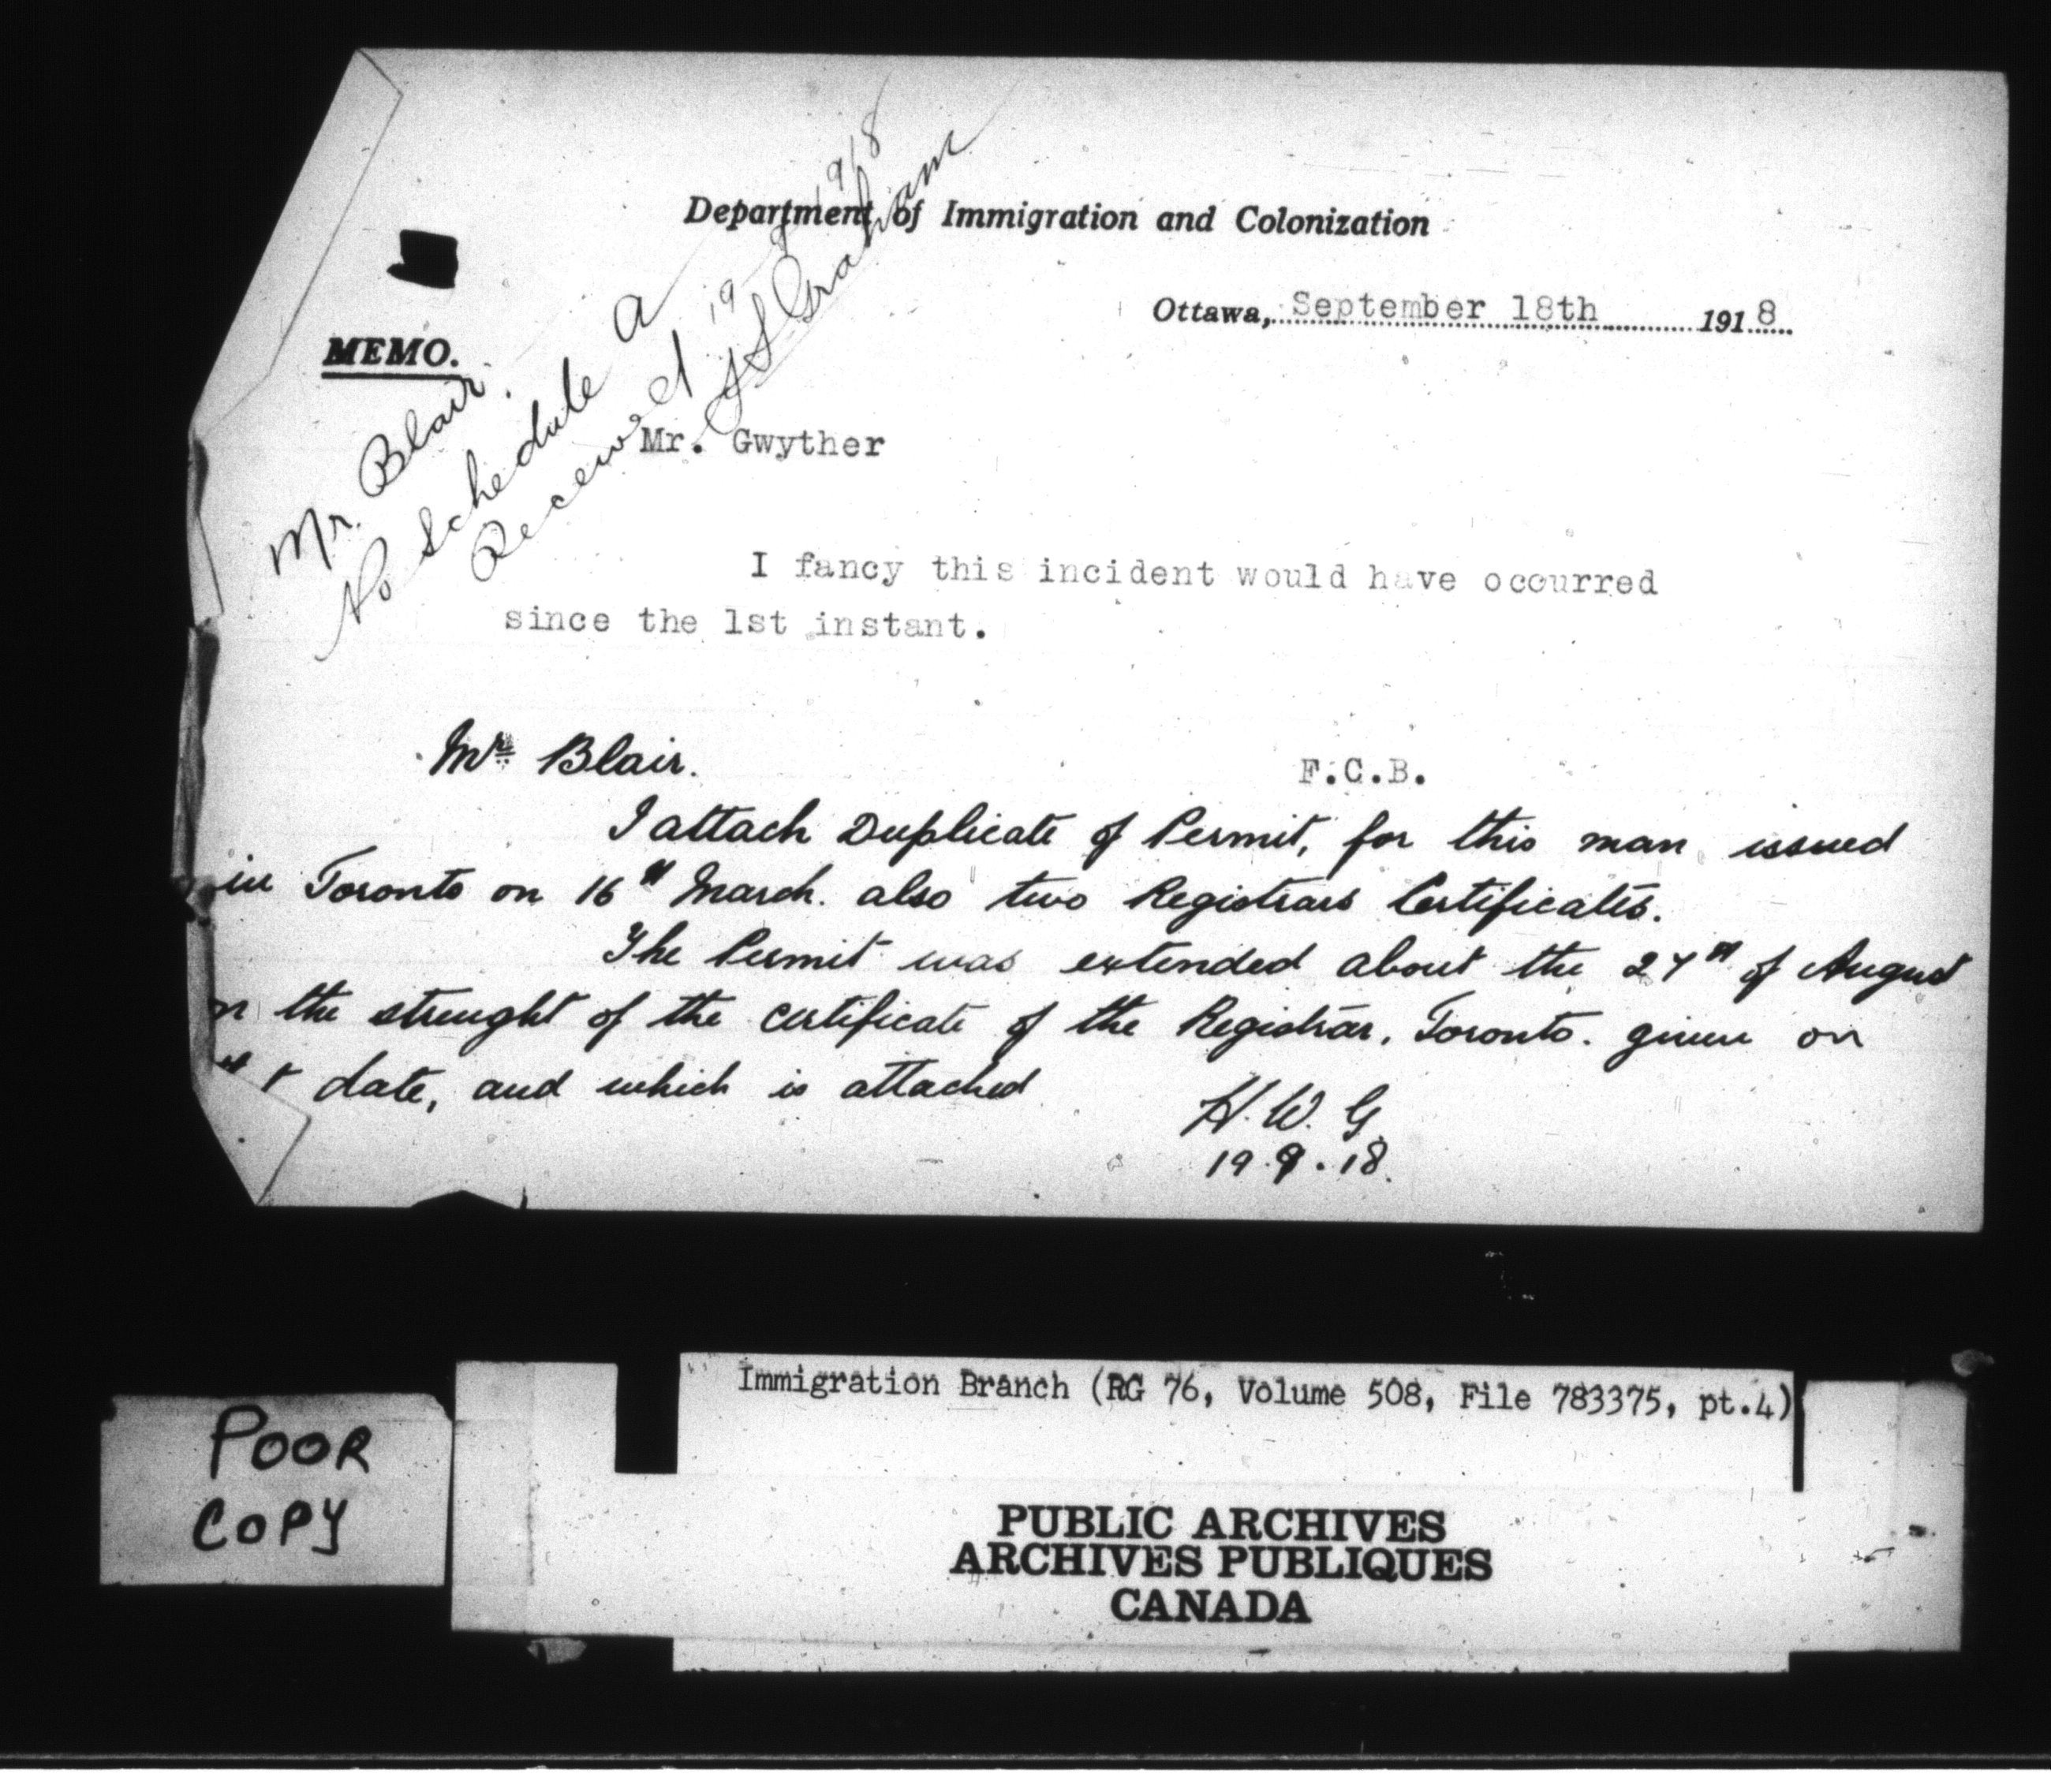 Department of Immigration and Colonization
Ottawa, September 18th 1918
MEMO.
Mr. Blair.
No Schedule A
Received 19 9 1918
Graham
Mr. Gwyther
I fancy this incident would have occurred
since the 1st instant.
F.C.B.
Mr Blair.
I attach Duplicate of Permit, for this man issued
in Toronto on 16th March. also two Registrars Certificates.
The Permit was extended about the 27th of August
the strenght of the certificate of the Registrar, Toronto. given on
date, and which is attached
H. W. G.
19.9.18.
Immigration Branch (RG 76, Volume 508, File 783375, pt.4)
POOR
COPY
PUBLIC ARCHIVES
ARCHIVES PUBLIQUES
CANADA